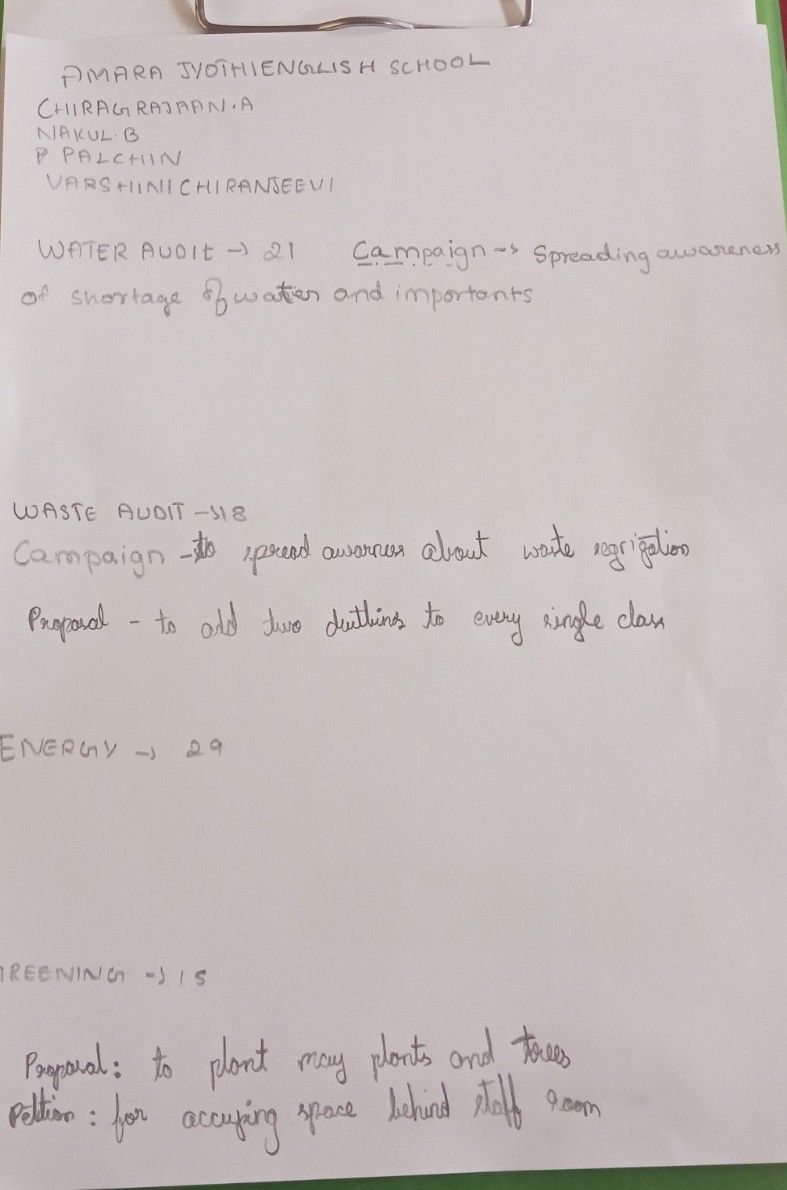 AMARA JYOTHI ENGLISH SCHOOL
CHIRAG RAJAAN.A
NAKUL.B
P PALCHIN
VARSHINI CHIRANJEEVI
WATER AUDIt → 21 Campaign → Spreading awareness
of shortage of water and importants
WASTE AUDIT → 18
Campaign - to spread awarness about waste segrigation
Proposal - to add two dustbins to every single class
ENERGY → 29
REENING → 15
Proposal: to plant may plants and trees
Petition: for accuping space behind staff room